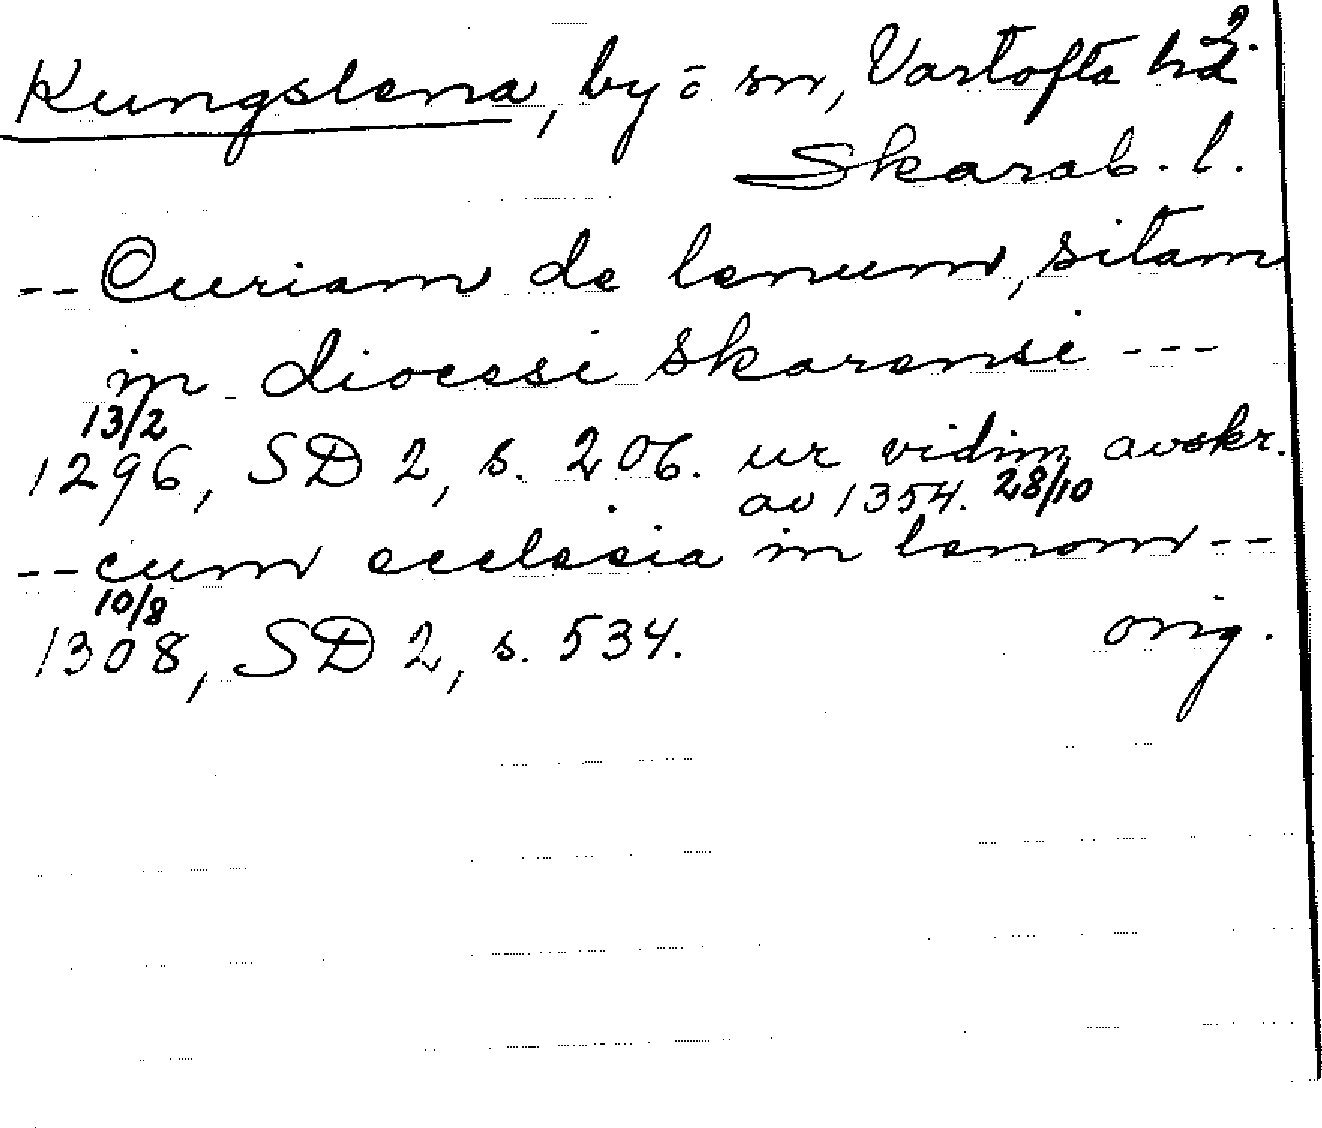 2.
Kungslena, by o sn, Vartofta hd
Skarab. l.
-- Curiam de lenum, sitam
in diocesi Skarensi ---
13/2
1296, SD 2, s. 206. ur vidim. avskr.
av 1354. 28/10
-- cum ecclesia in lenom --
10/8
1308, SD 2, s. 534. orig.